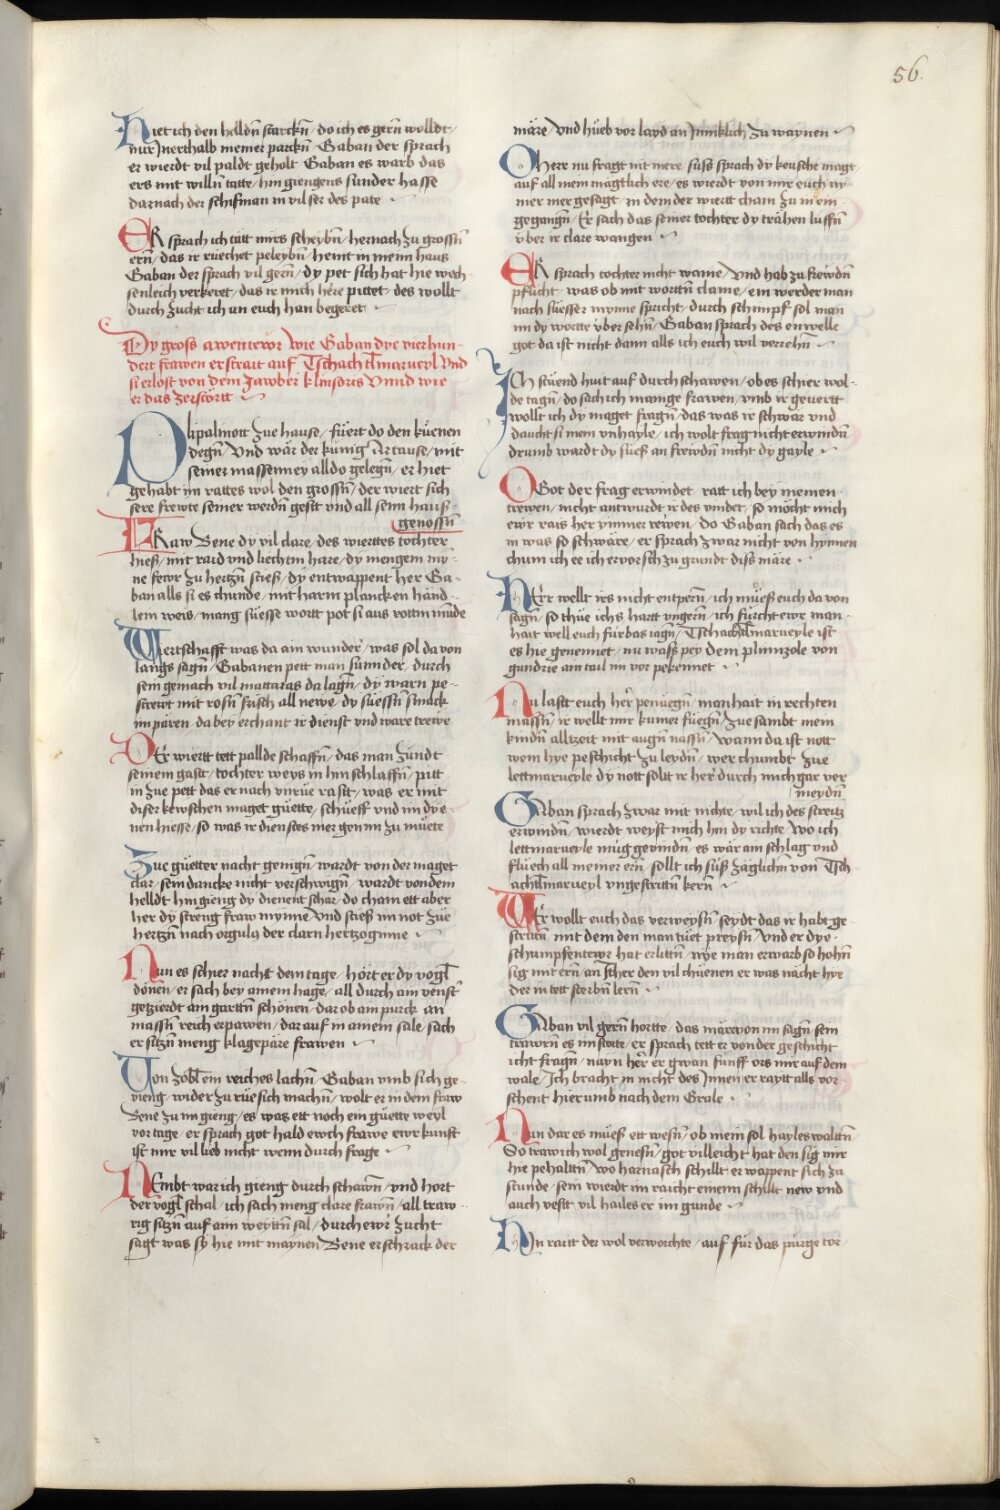 56.
Niet ich den helldn starckn / do ich es gern wolldt /
nur Jnerthalb meiner parckn / Gaban der sprach
er wierdt vil paldt geholt / Gaban es warb das
ers mit willn tatte / hin giengens sunder hasse
darnach der schifman in vil ser des pate
ER sprach ich tätt mirs scheybn / hernach zu grossn
ern / das ir ruechet peleybn / heint in meim haus
Gaban der sprach vil gern / dy pet sich hat hie woch
senleich verkeret / das ir mich here pittet / des wollt
durch zucht ich an euch han begeret
Dy gross awentewr wie Gaban dye vier hun-
dert frawen erstrait auf Tschachtlmarueyl Vnd
si erlost von dem zawber klinsors Vnnd wie
er das zerstörtt
Plipalinott zue hause / füert do den küenen
degn / Vnd wär der kunig Artause / mit
seiner massenney alldo gelegn / er hiet
gehabt im rattes wol den grossn / der wiert sich
sere frewte seiner werdn gestt vnd all seim haus
genossn
FRaw Bene dy vil clare / des wierttes tochter
hiess / mit raid vnd liechtm hare / dy mengem my-
ne fewr zu hertzn stiess / dy entwappent her Ga-
ban alls si es chunde / mit harm plancken händ
lem weis / mang süesse wortt pot si aus rottm munde
Wertschafft was da ain wunder / was sol da von
langs sagn / Gabanen pett man sunnder / durch
sein gemach vil mattaras da lagn / dy warn pe-
strewt mit rosn frisch all newe / dy suessn smack
im pären / da bey erchant ir dienst vnd ware trewe
DEr wiertt tett pallde schaffn / das man zündt
seinem gastt / tochter weys in hin schlaffn / pitt
in zue pett das er nach vnrüe rastt / was er mit
diser kewschen maget güette / schüeff vnd im dye-
nen hiesse / so was ir dienstes mer genim zu müete
Zue güetter nacht genign / wardt von der maget
clar / sein dancke nicht verschwign / wardt von dem
helldt hin gieng dy dienent schar / do cham ett aber
her dy streng fraw mynne Vnd stiess im not zue
hertzn nach orgulus der clarn hertzoginne
Nun es schier nacht dem tage / hört er dy vogl
dönen / er sach bey ainem hage / all durch ain venst
getzierdt ain garttn schönen / dar ob ain purck an
massn reich erpawen / dar auf in ainem sale / sach
er sitzn meng klagepäre frawen
Von zobl ein reiches lachn / Gaban vmb sich ge-
vieng / wider zu rüe sich machn / wolt er in dem fraw
Bene zu im gieng / es was ett noch ein güette weyl
vor tage / er sprach got hald ewch frawe ewr kunft
ist mir vil lieb nicht wenn durch frage
NEmbt war ich gieng durch schawn / vnd hort
der vogl schal / ich sach meng clare frawn / all traw-
rig sitzn auf aim weyttn sal / durch ewr zucht
sagt was sy hie mit maynen Bene erschrack der
märe / vnd hüeb vor layd an Jnniklich zu waynen
O herr nu fragt nit mere / süss sprach dy keusche magt
auf all mein magtlich ere / es wierdt von mir euch ny-
mer mer gesagt / in dem der wiertt cham zu in ein
gegangn / Er sach das seiner tochter dy trähen luffn
vber ir clare wangen
ER sprach tochter nicht waine / Vnd hab zu frewdn
pflicht / was ob mit worttn claine / ein werder man
nach süesser mynne spricht / durch schimpf sol man
im dy wortte vbersehn / Gaban sprach des en welle
got da ist nicht dann alls ich euch wil veriehn
Ich stüend hiut auf durch schawen / ob es schier wol-
de tagn / do sach ich manige frawen / vmb ir geuertt
wollt ich dy maget fragn / das was ir schwär vnd
daucht si mein vnhayle / ich wolt frag nicht erwindn
drumb wardt dy süess an frewdn nicht dy gayle
O Got der frag erwindet / ratt ich bey meinen
trewen / nicht antwurdt ir des vindet / so möcht mich
ewr rais her ymmer rewen / do Gaban sach das es
in was so schwäre / er sprach zwar nicht von hynnen
chum ich ee ich ervorsch zu grundt diss märe
NEr wellt irs nicht entpern / ich müess euch da von
sagn / so thüe ichs hartt vngern / ich fürcht ewr man-
hait well euch fürbas iagn / Tschachtlmarueyle ist
es hie genennet / nu wass pey dem plimizole von
gundrie ain tail im vor pekennet
Nu lastt euch her penüegn / manhait in rechten
massn / ir wellt mir kumer füegn / zue sambt mein
kindn alltzeit mit augn nassn / wann da ist nott
wem hye peschicht zu leydn / wer chumbt zue
lettmarueyle dy nott soltt ir her durch mich gar ver
meydn
GAban sprach zwar mit nichte / wil ich des streitz
erwindn / wierdt weyst mich hin dy richte / wo ich
lettmarueyle müg gevindn / es wär ain schlag vnd
flüech all meiner ern / sollt ich süss zäglichn von Tsch-
achtlmarueyl vngestrittn kern
WEr wollt euch das verweysn / seydt das ir habt ge-
strittn mit dem den man tüet preysn / Vnd er dye
schumpfentewr hat erlittn / nye man erwarb so hohn
sig mit ern / an Jther den vil chüenen er was nächt hye
der in tett sterbn lern
GAban vil gern hortte / das märe von im sagn / sein
trawrn es im storte / er sprach tett er von der geschicht
icht fragn / nayn her er gwan fünff ors mir auf dem
wale / Ich bracht in nicht des Jnnen er raytt alls vor-
schent hier vmb nach dem Grale
Nun dar es müess ett wesn / ob mein sol hayles walltn /
So traw ich wol genesn / got villeicht hat den sig mir
hie pehalltn / wo harnasch schillt er wappent sich zu
stunde / sein wierdt im raicht einem schillt new vnd
auch vestt vil hailes er im gunde
IHn raitt der wol verworchte / auf für das purge tor